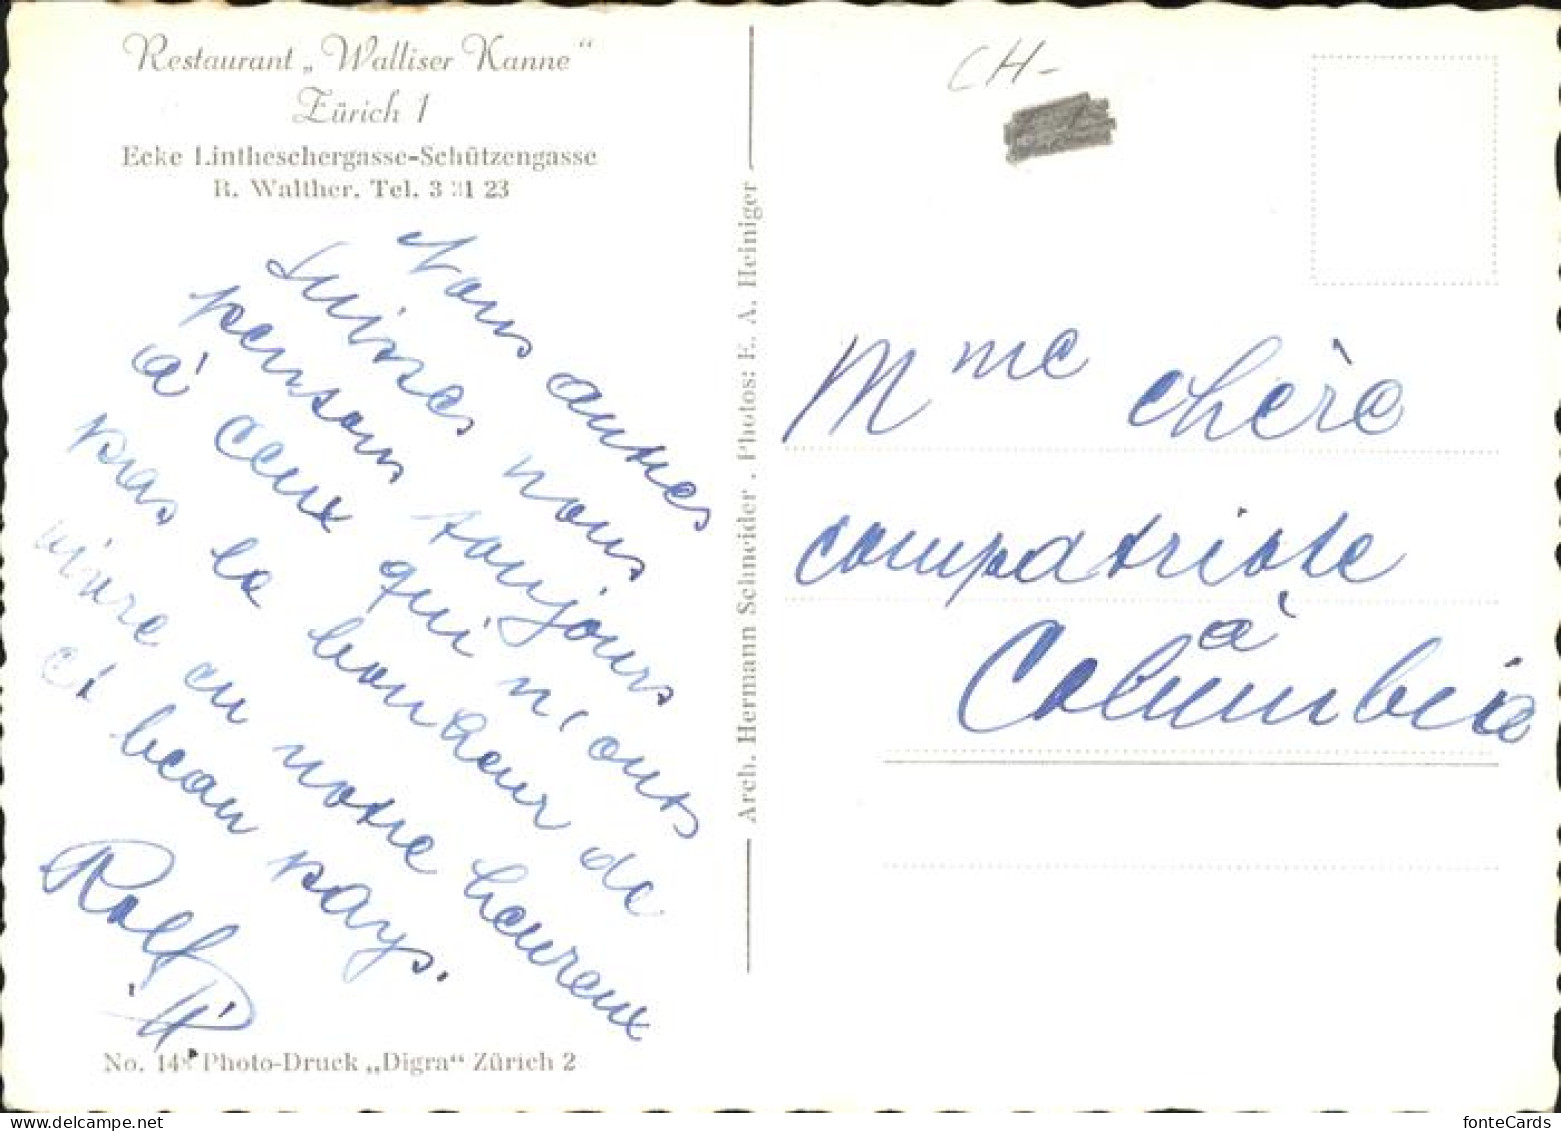 Restaurant „Walliser Kanne“
Zürich 1
Ecke Lintheschergasse-Schützengasse
R. Walther. Tel. 3 31 23
Nous autres
suisses nous
pensons toujours
à ceux qui n'onts
pas le bonheur de
vivre en notre heureux
et beau pays.
Rolf
No. 148 Photo-Druck „Digra“ Zürich 2
Arch. Hermann Schneider . Photos: E. A. Heiniger
CH-
Mme chère
compatriote
à
Columbia
delcampe.net
fonteCards